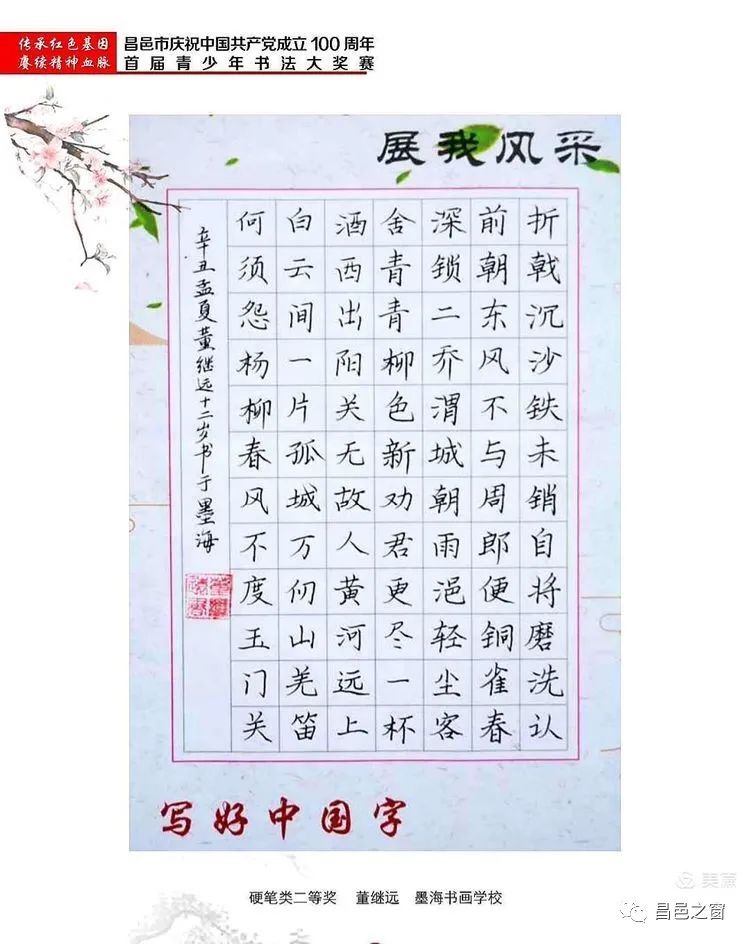 传承红色基因
赓续精神血脉
昌邑市庆祝中国共产党成立100周年
首届青少年书法大奖赛
展我风采
折戟沉沙铁未销自将磨洗认
前朝东风不与周郎便铜雀春
深锁二乔渭城朝雨浥轻尘客
舍青青柳色新劝君更尽一杯
酒西出阳关无故人黄河远上
白云间一片孤城万仞山羌笛
何须怨杨柳春风不度玉门关
辛丑孟夏董继远十二岁书于墨海
写好中国字
硬笔类二等奖 董继远 墨海书画学校
美篇
昌邑之窗